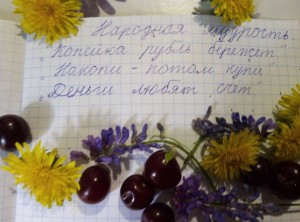 Народная "мудрость
Копейка рубль бережет"
"Накопи - потом купи"
Деньги любят счет"